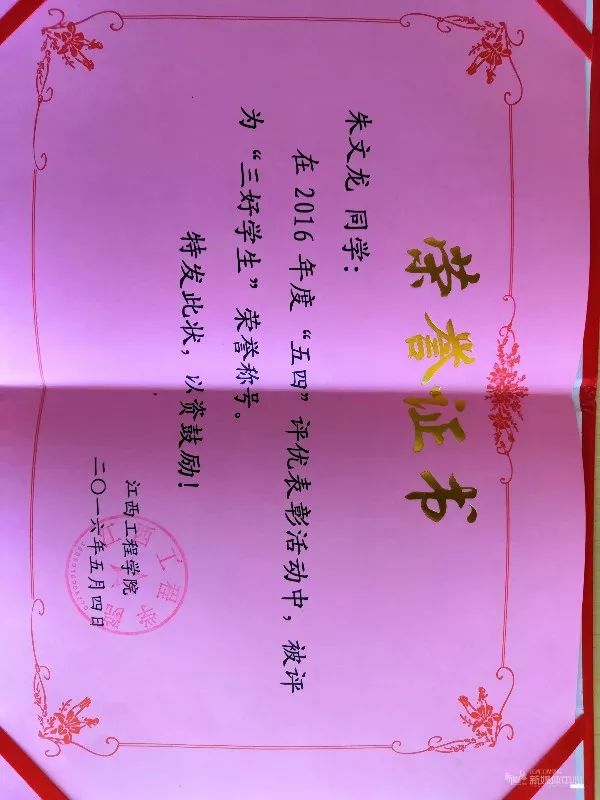 荣誉证书
朱文龙 同学：
在 2016 年度 “五四” 评优表彰活动中，被评
为 “三好学生” 荣誉称号。
特发此状，以资鼓励！
江西工程学院
二〇一六年五月四日